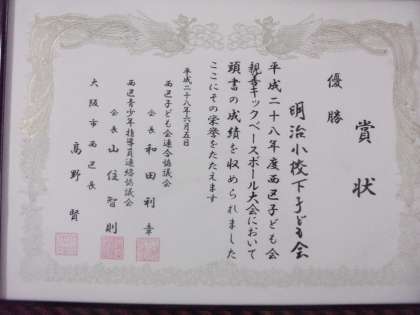 賞状
優勝
明治小校下子ども会
平成二十八年度西区子ども会
親善キックベースボール大会において
頭書の成績を収められました
ここにその栄誉をたたえます
平成二十八年六月五日
西区子ども会連合協議会
会長 和田利幸
西区青少年指導員連絡協議会
会長 山住智則
大阪市西区長
高野賢